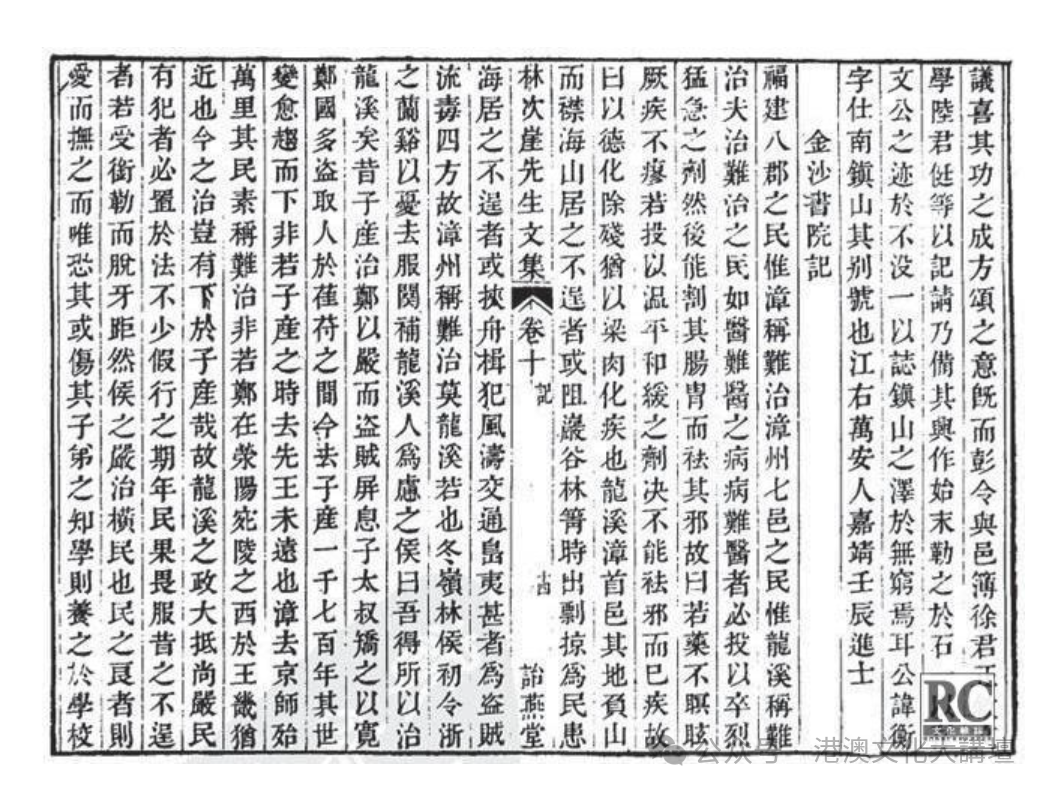 議喜其功之成方頌之意旣而彭令與邑簿徐君
學陸君侹等以記請乃備其興作始末勒之於石
文公之迹於不没一以誌鎮山之澤於無窮焉耳公諱衡
字仕南鎮山其别號也江右萬安人嘉靖壬辰進士
金沙書院記
福建八郡之民惟漳稱難治漳州七邑之民惟龍溪稱難
治夫治難治之民如醫難醫之病病難醫者必投以卒烈
猛急之劑然後能割其腸胃而祛其邪故曰若藥不瞑眩
厥疾不瘳若投以温平和緩之劑决不能祛邪而已疾故
曰以德化除殘猶以梁肉化疾也龍溪漳首邑其地負山
而襟海山居之不逞者或阻巖谷林箐時出剽掠爲民患
林次崖先生文集 卷十 記 十四 詒燕堂
海居之不逞者或挾舟楫犯風濤交通島夷甚者爲盗賊
流毒四方故漳州稱難治莫龍溪若也冬嶺林侯初令浙
之蘭谿以憂去服闋補龍溪人爲慮之侯曰吾得所以治
龍溪矣昔子産治鄭以嚴而盗賊屏息子太叔矯之以寛
鄭國多盗取人於萑苻之間今去子産一千七百年其世
變愈趨而下非若子産之時去先王未遠也漳去京師始
萬里其民素稱難治非若鄭在滎陽宛陵之西於王畿猶
近也今之治豈有下於子産哉故龍溪之政大抵尚嚴民
有犯者必置於法不少假行之期年民果畏服昔之不逞
者若受銜勒而脫牙距然侯之嚴治橫民也民之良者則
愛而撫之而唯恐其或傷其子弟之知學則養之於學校
RC
文化雜誌
公众号 · 港澳文化大講壇